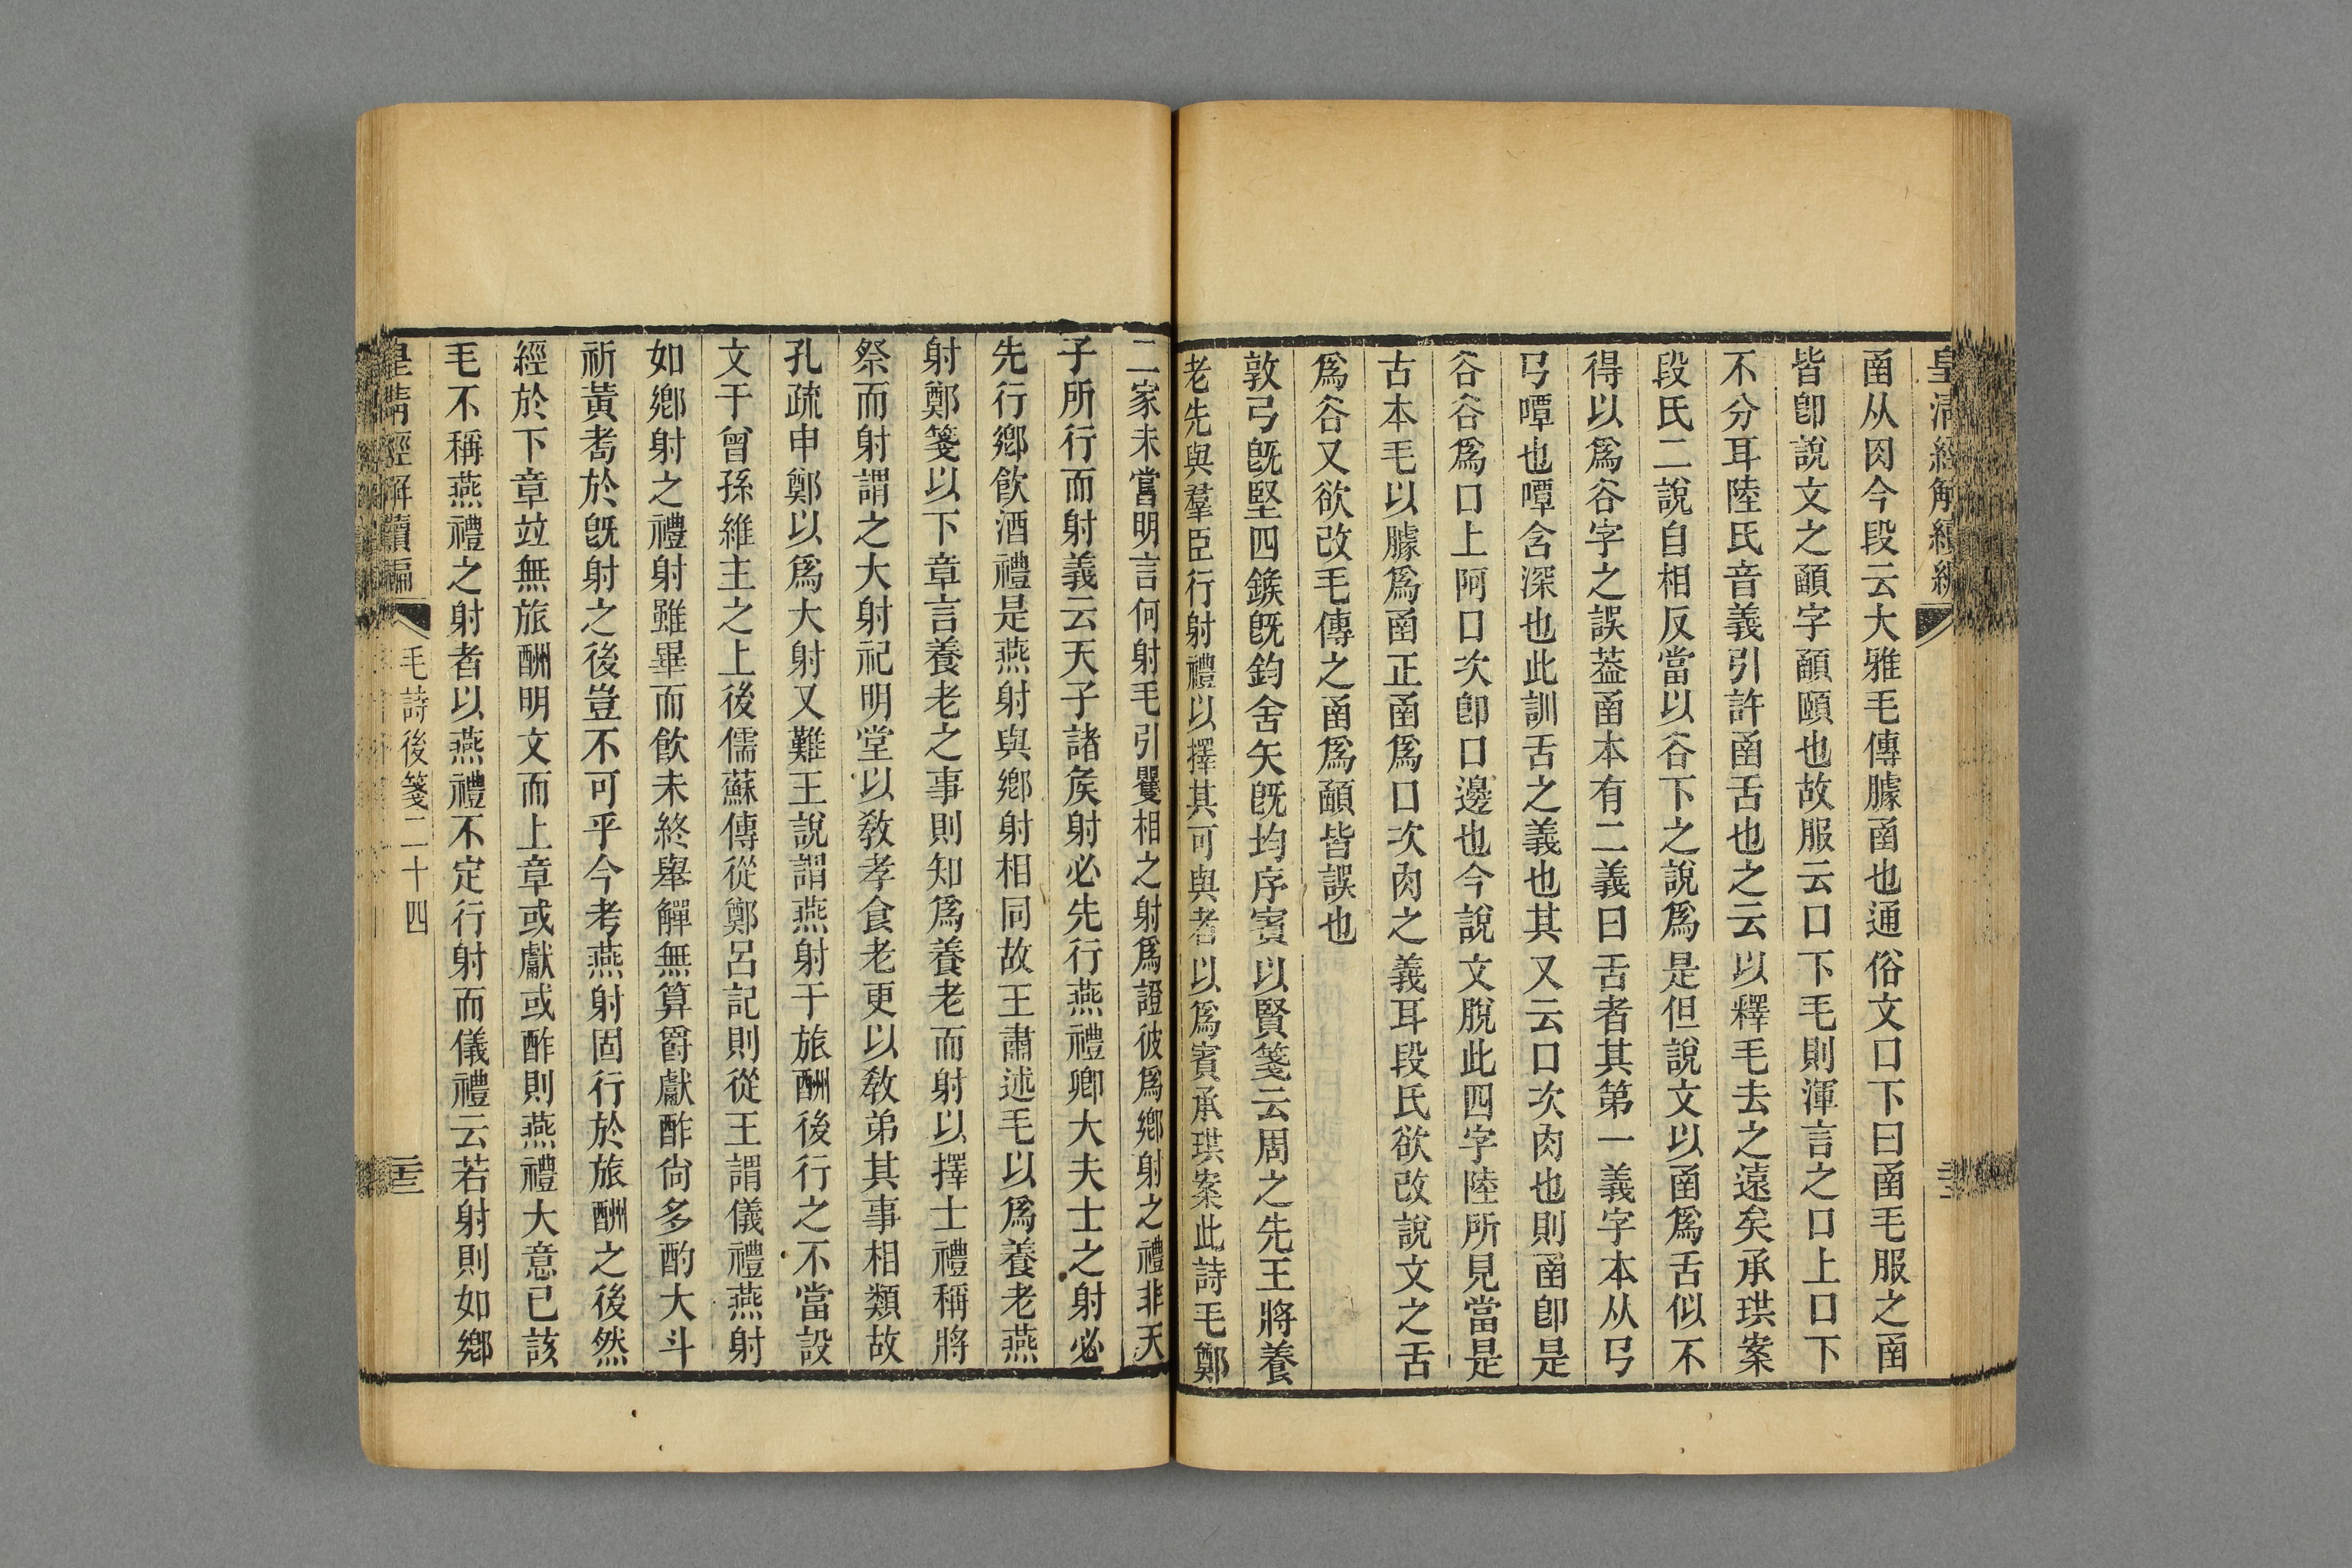 皇清經解續編
圅从肉今段云大雅毛傳臄圅也通俗文口下曰圅毛服之圅
皆卽說文之顄字顄頤也故服云口下毛則渾言之口上口下
不分耳陸氏音義引許圅舌也之云以釋毛去之遠矣承珙案
段氏二說自相反當以谷下之說爲是但說文以圅爲舌似不
得以爲谷字之誤葢圅本有二義曰舌者其第一義字本从𢎘
𢎘嘾也嘾含深也此訓舌之義也其又云口次肉也則圅卽是
谷谷爲口上阿口次卽口邊也今說文脫此四字陸所見當是
古本毛以臄爲圅正圅爲口次肉之義耳段氏欲改說文之舌
爲谷又欲改毛傳之圅爲顄皆誤也
敦弓旣堅四鍭旣鈞舍矢旣均序賓以賢箋云周之先王將養
老先與羣臣行射禮以擇其可與者以爲賓承珙案此詩毛鄭
二家未嘗明言何射毛引矍相之射爲證彼爲鄉射之禮非天
子所行而射義云天子諸矦射必先行燕禮卿大夫士之射必
先行鄉飮酒禮是燕射與鄉射相同故王肅述毛以爲養老燕
射鄭箋以下章言養老之事則知爲養老而射以擇士禮稱將
祭而射謂之大射祀明堂以敎孝食老更以敎弟其事相類故
孔疏申鄭以爲大射又難王說謂燕射于旅酬後行之不當設
文于曾孫維主之上後儒蘇傳從鄭呂記則從王謂儀禮燕射
如鄉射之禮射雖畢而飮未終舉觶無算爵獻酢尙多酌大斗
祈黃耇於旣射之後豈不可乎今考燕射固行於旅酬之後然
經於下章竝無旅酬明文而上章或獻或酢則燕禮大意已該
毛不稱燕禮之射者以燕禮不定行射而儀禮云若射則如鄉
皇淸經解續編 毛詩後箋二十四